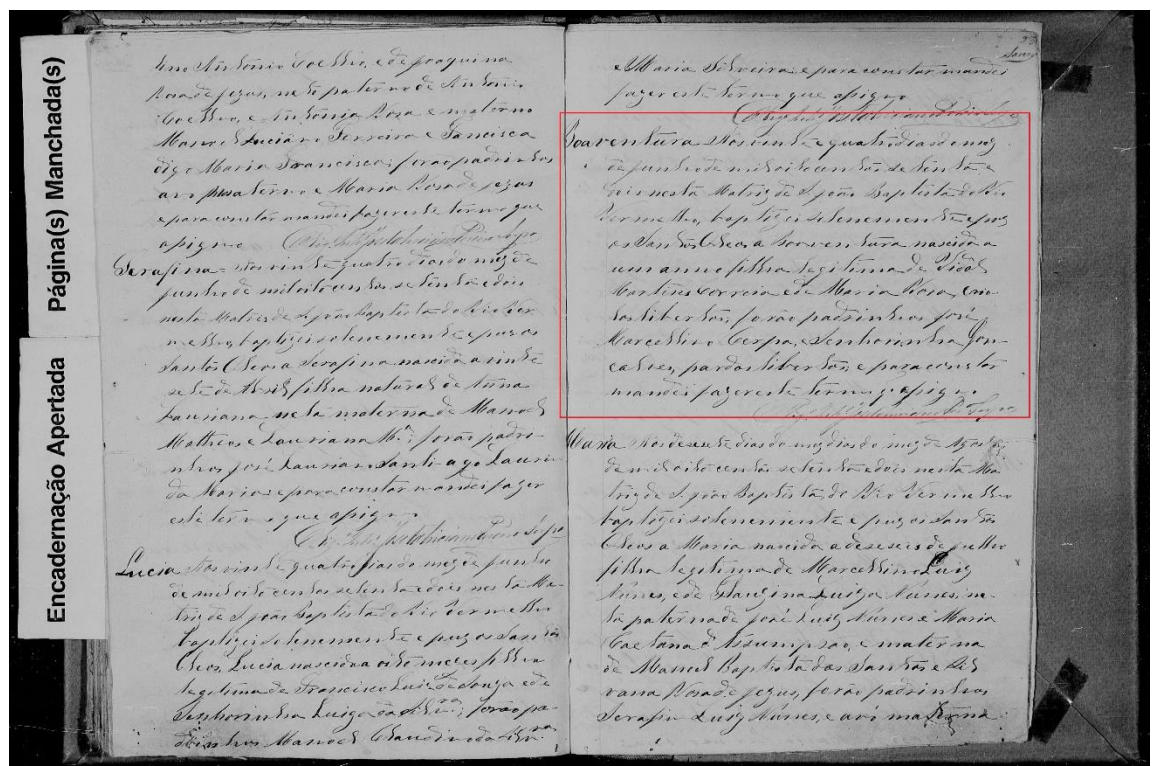 Página(s) Manchada(s)
Encadernação Apertada
lino Antonio Coelho, e de Joaquina
Rosa de jezus, neto paterno de Antonio
Coelho, e Antonia Rosa e materno
Manoel Luciano Ferreira e Francisca
digo Maria Francisca; forão padrinhos
avo paterno e Maria Rosa de jezus
e para constar mandei fazer este termo que
asigno
Serafina = Aos vinte quatro dias do mez de
junho de mil oito centos setenta e dois
nesta Matriz de S. joão Baptista do Rio Ver
melho, baptizei solenemente e puz os
Santos Oleos a Serafina nascida a vinte
sete de Abril filha natural de Anna
Lauriana neta materna de Manoel
Matheos e Lauriana Mª; forão padri-
nhos josé Laurian Santiago Lauri
da Maria e para constar mandei fazer
este termo que asigno
Lucia Aos vinte quatro dias do mez de junho
de mil oito centos setenta e dois nesta Ma-
triz de S. joão Baptista do Rio Vermelho
baptizei solenemente e puz os Santos
Oleos, Lucia nascida a oito mezes filha
legitima de Francisco Luiz de Souza e de
Senhorinha Luiza da Silvª; forão pa-
drinhos Manoel Claudino da Silvª
e Maria Silveira e para constar mandei
fazer este termo que asigno
Boaventura Aos vinte e quatro dias do mez
de junho de mil oito centos setenta e
dois nesta Matriz de S. joão Baptista do Rio
Vermelho, baptizei solenemente e puz
os Santos Oleos a Boaventura nascida a
um anno filha legitima de
Martins Correia e de Maria Rosa, crio
los libertos, forão padrinhos josé
Marcellino Cerpa, e Senhorinha Gon
calves, pardos libertos, e para constar
mandei fazer este termo q asigno
Maria Aos dezesete dias do mez dias do mez de Agosto
de mil oito centos setenta e dois nesta Ma
triz de S. joão Baptista do Rio Vermelho
baptizei solenemente e puz os Santos
Oleos a Maria nascida a deseseis de julho
filha legitima de Marcellino Luiz
Nunes, e de Luiza Nunes, ne-
ta paterna de José Luiz Nunes e Maria
Caetana d Assumpsao, e materna
de Manoel Baptista dos Santos, e Sil
vana Rosa de jezus, forão padrinhos
Serafin Luiz Nunes, e avo materna